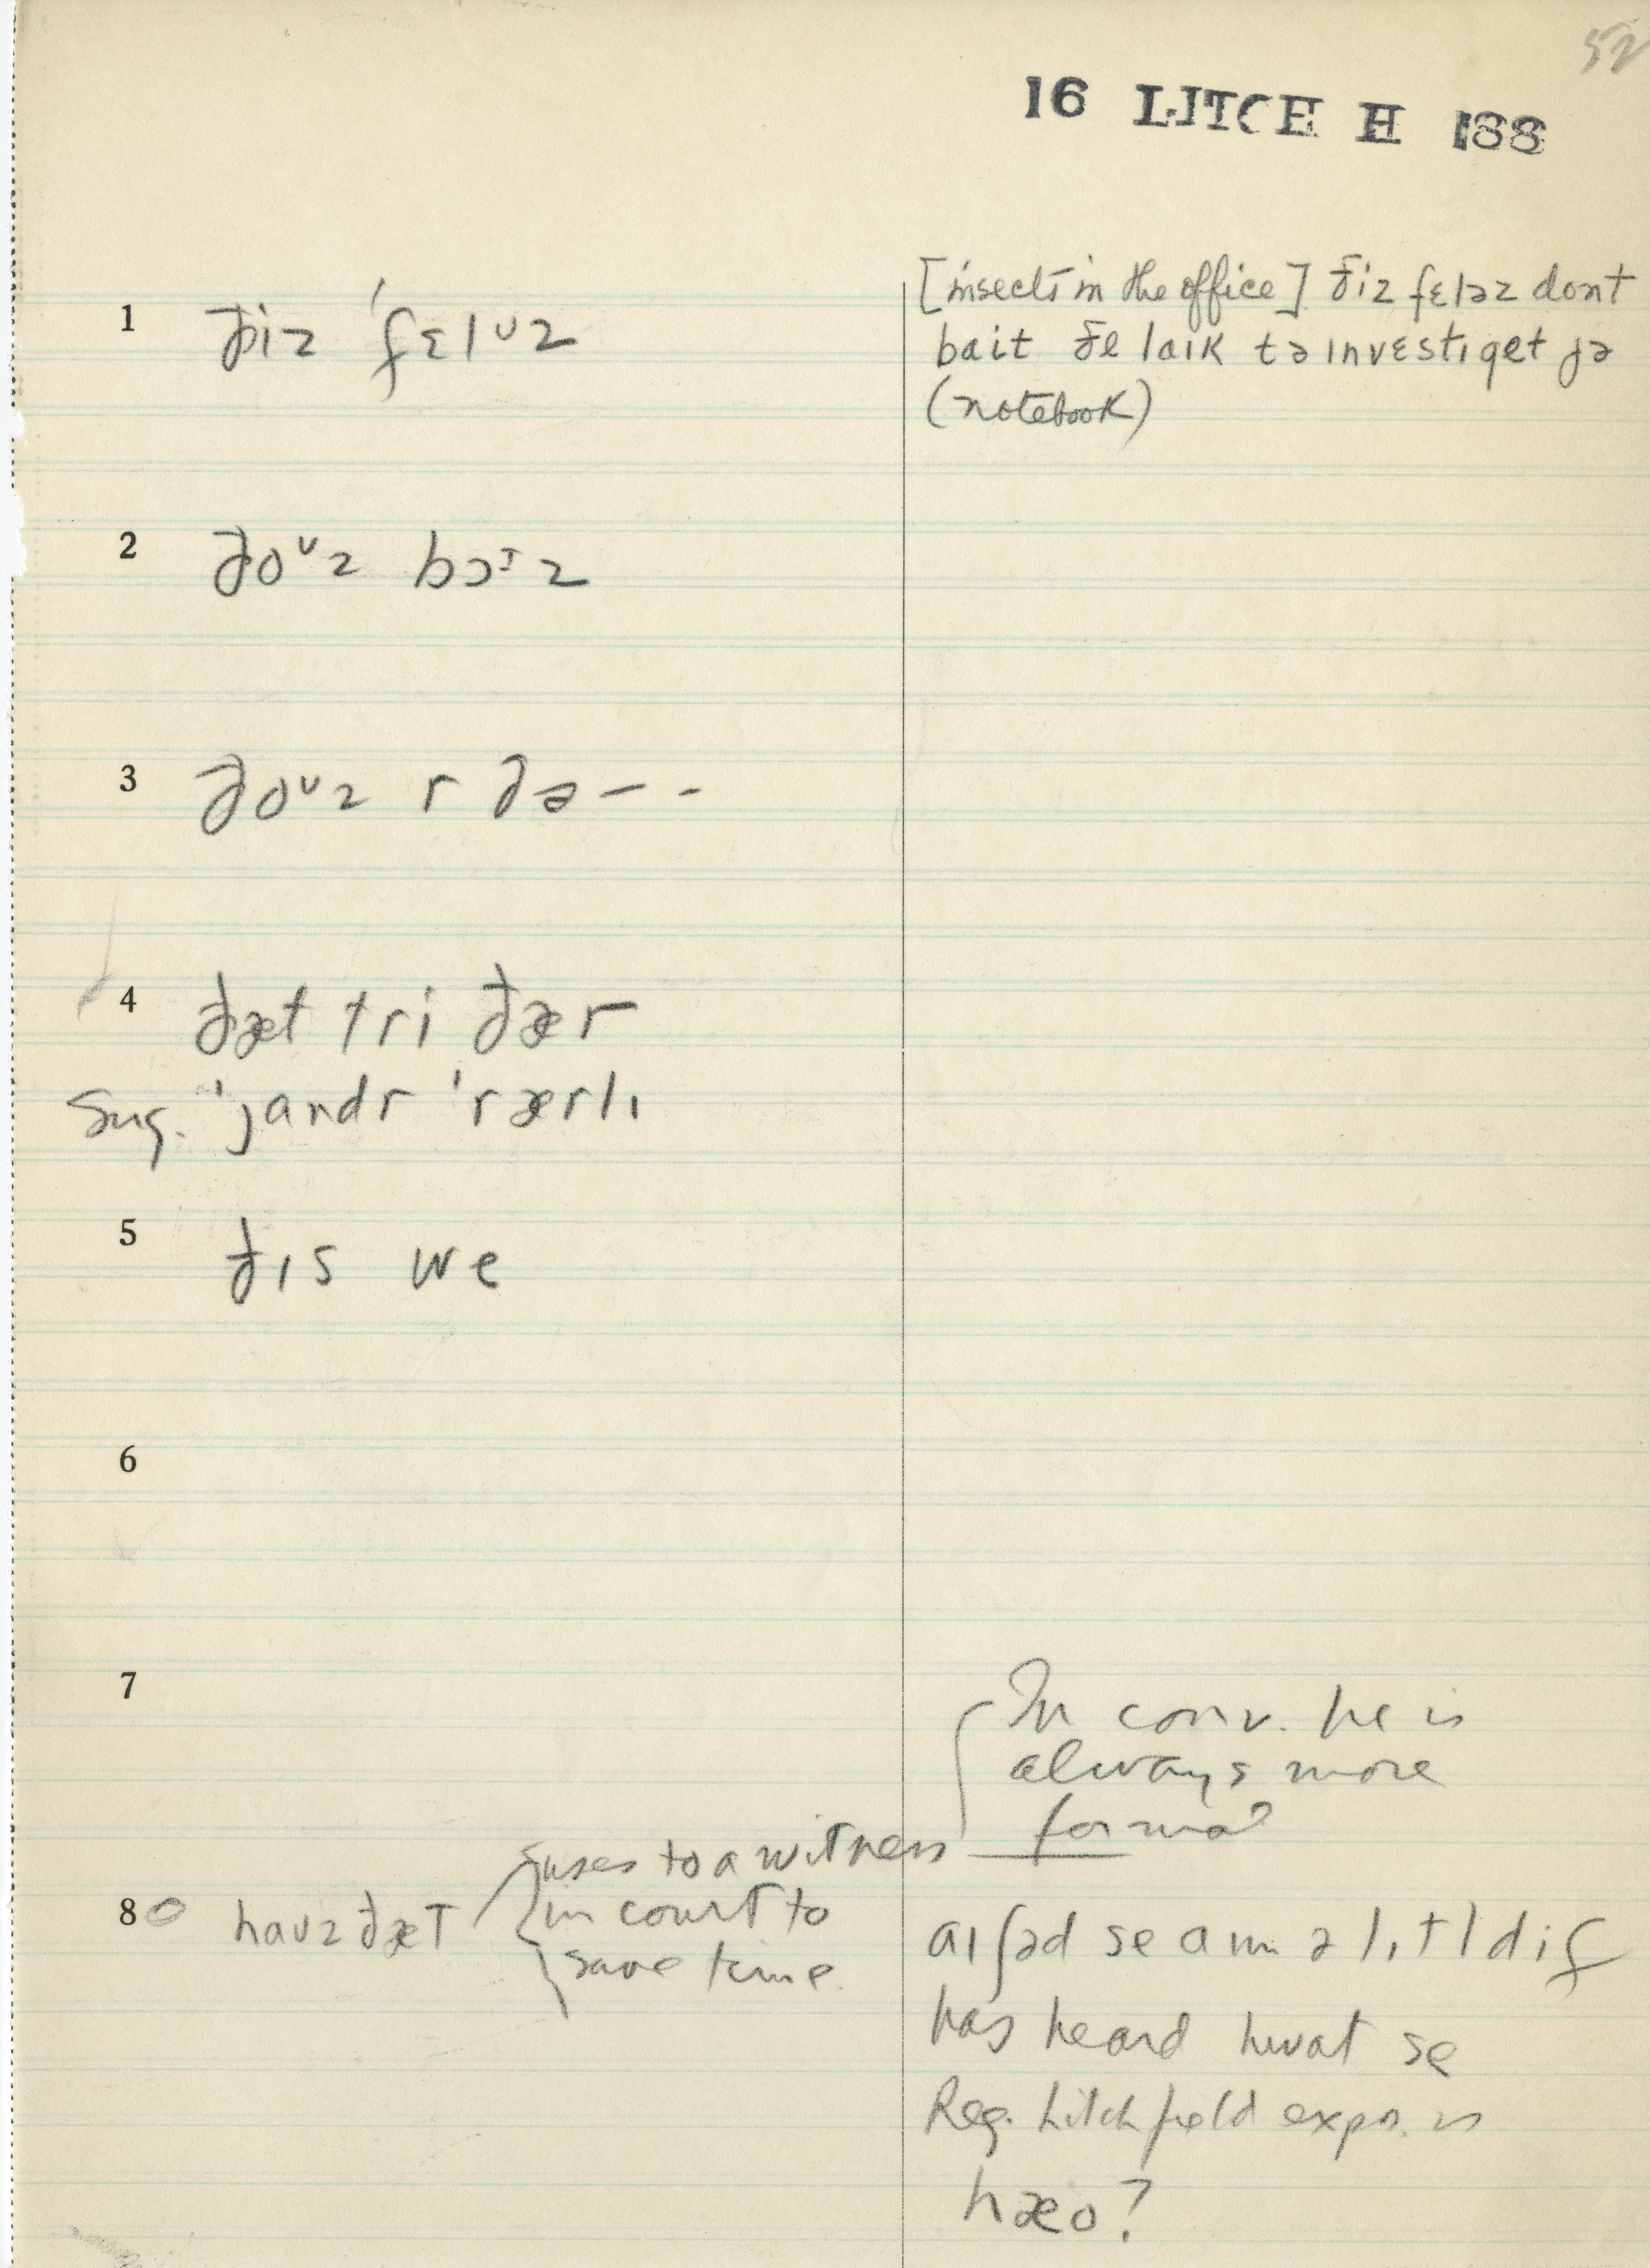 52
16 LITCH H 188
1 ðiz ˈfɛlᴜz
[insects in the office] ðiz fɛləz dont
bait ðe laɪk tə ɪnvɛstɪget jə
(notebook)
2 ðoᶷz bɔᶦz
3 ðoᶷz r ðə - -
4 ðæt tri ðær
Sug. ˈjandr ˈrærlɪ
5 ðɪs we
6
7
In conv. he is
always more
formal
8 0 haʊz ðæt
uses to a witness
in court to
save time.
aɪ ʃəd se am ə lɪtl dif
has heard hwat se
Reg. Litchfield expr. is
hæo?